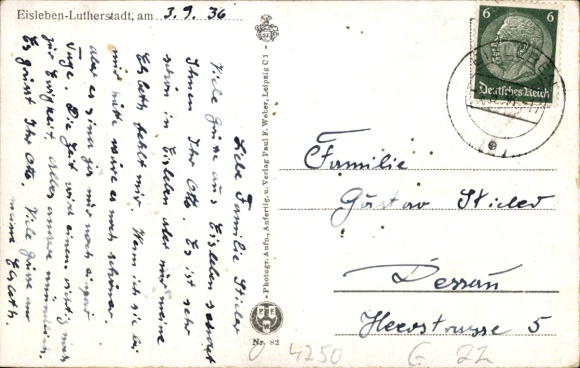 Eisleben-Lutherstadt, am 3.9.36
Liebe Familie Stieler
Viele Grüße aus Eisleben sendet
Ihnen Ihr Otto. Es ist sehr
schön in Eisleben aber nur meine
Elsbeth fehlt mir. Wenn ich sie bei
mir hätte wäre es noch schöner.
aber es sind ja nur noch ein paar
Tage. Die Zeit wird einem richtig noch
zur Ewigkeit. Alles andere mündlich.
Es grüsst Ihr Otto. Viele Grüsse an
meine Elsbeth.
Photogr. Aufn., Anfertig. u. Verlag Paul F. Weber, Leipzig C 1
Nr. 82
6 6
Deutsches Reich
Familie
Gustav Stieler
Dessau
Heerstrasse 5
4250
G 22